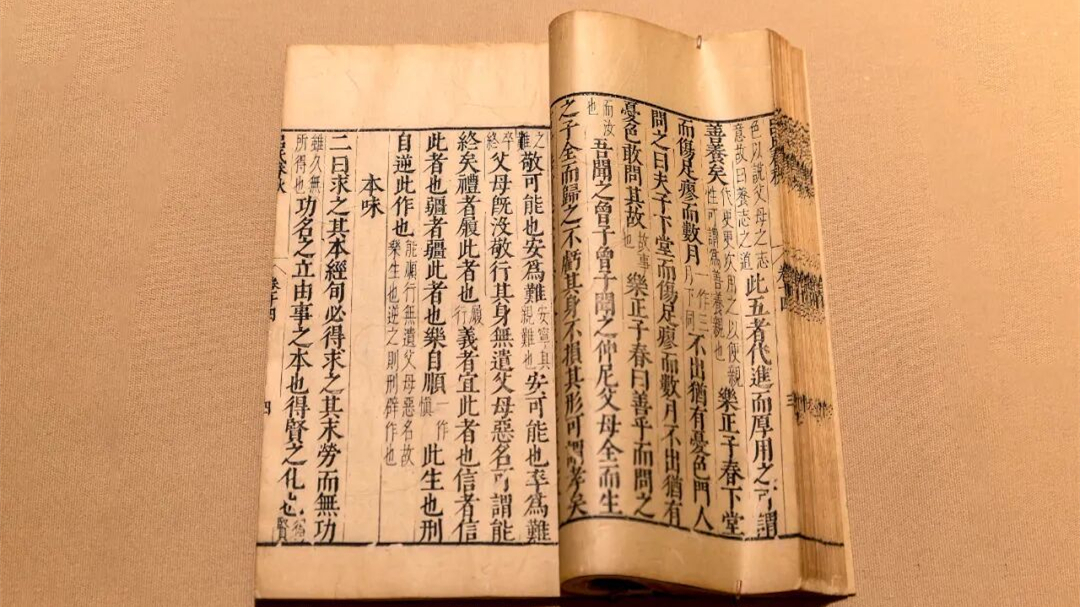 色以說父母之志意故曰養志之道此五者代進而厚用之可謂
善養矣代更更次用之以便親性可謂爲善養親也樂正子春下堂
而傷足瘳而數月一作三月下同不出猶有憂色門人
問之曰夫子下堂而傷足瘳而數月不出猶有
憂色敢問其故故事也樂正子春曰善乎而問之
而汝也吾聞之曾子曾子聞之仲尼父母全而生
之子全而歸之不虧其身不損其形可謂孝矣
之難敬可能也安爲難安寧其親難也安可能也卒爲難
卒終父母旣沒敬行其身無遺父母惡名可謂能
終矣禮者履此者也履行義者宜此者也信者信
此者也疆者疆此者也樂自順一作慎此生也刑
自逆此作也能順行無遺父母惡名故樂生也逆之則刑辟作也
本味
二曰求之其本經旬必得求之其末勞而無功
雖久無所得也功名之立由事之本也得賢之化也賢
呂氏春秋 卷十四 四